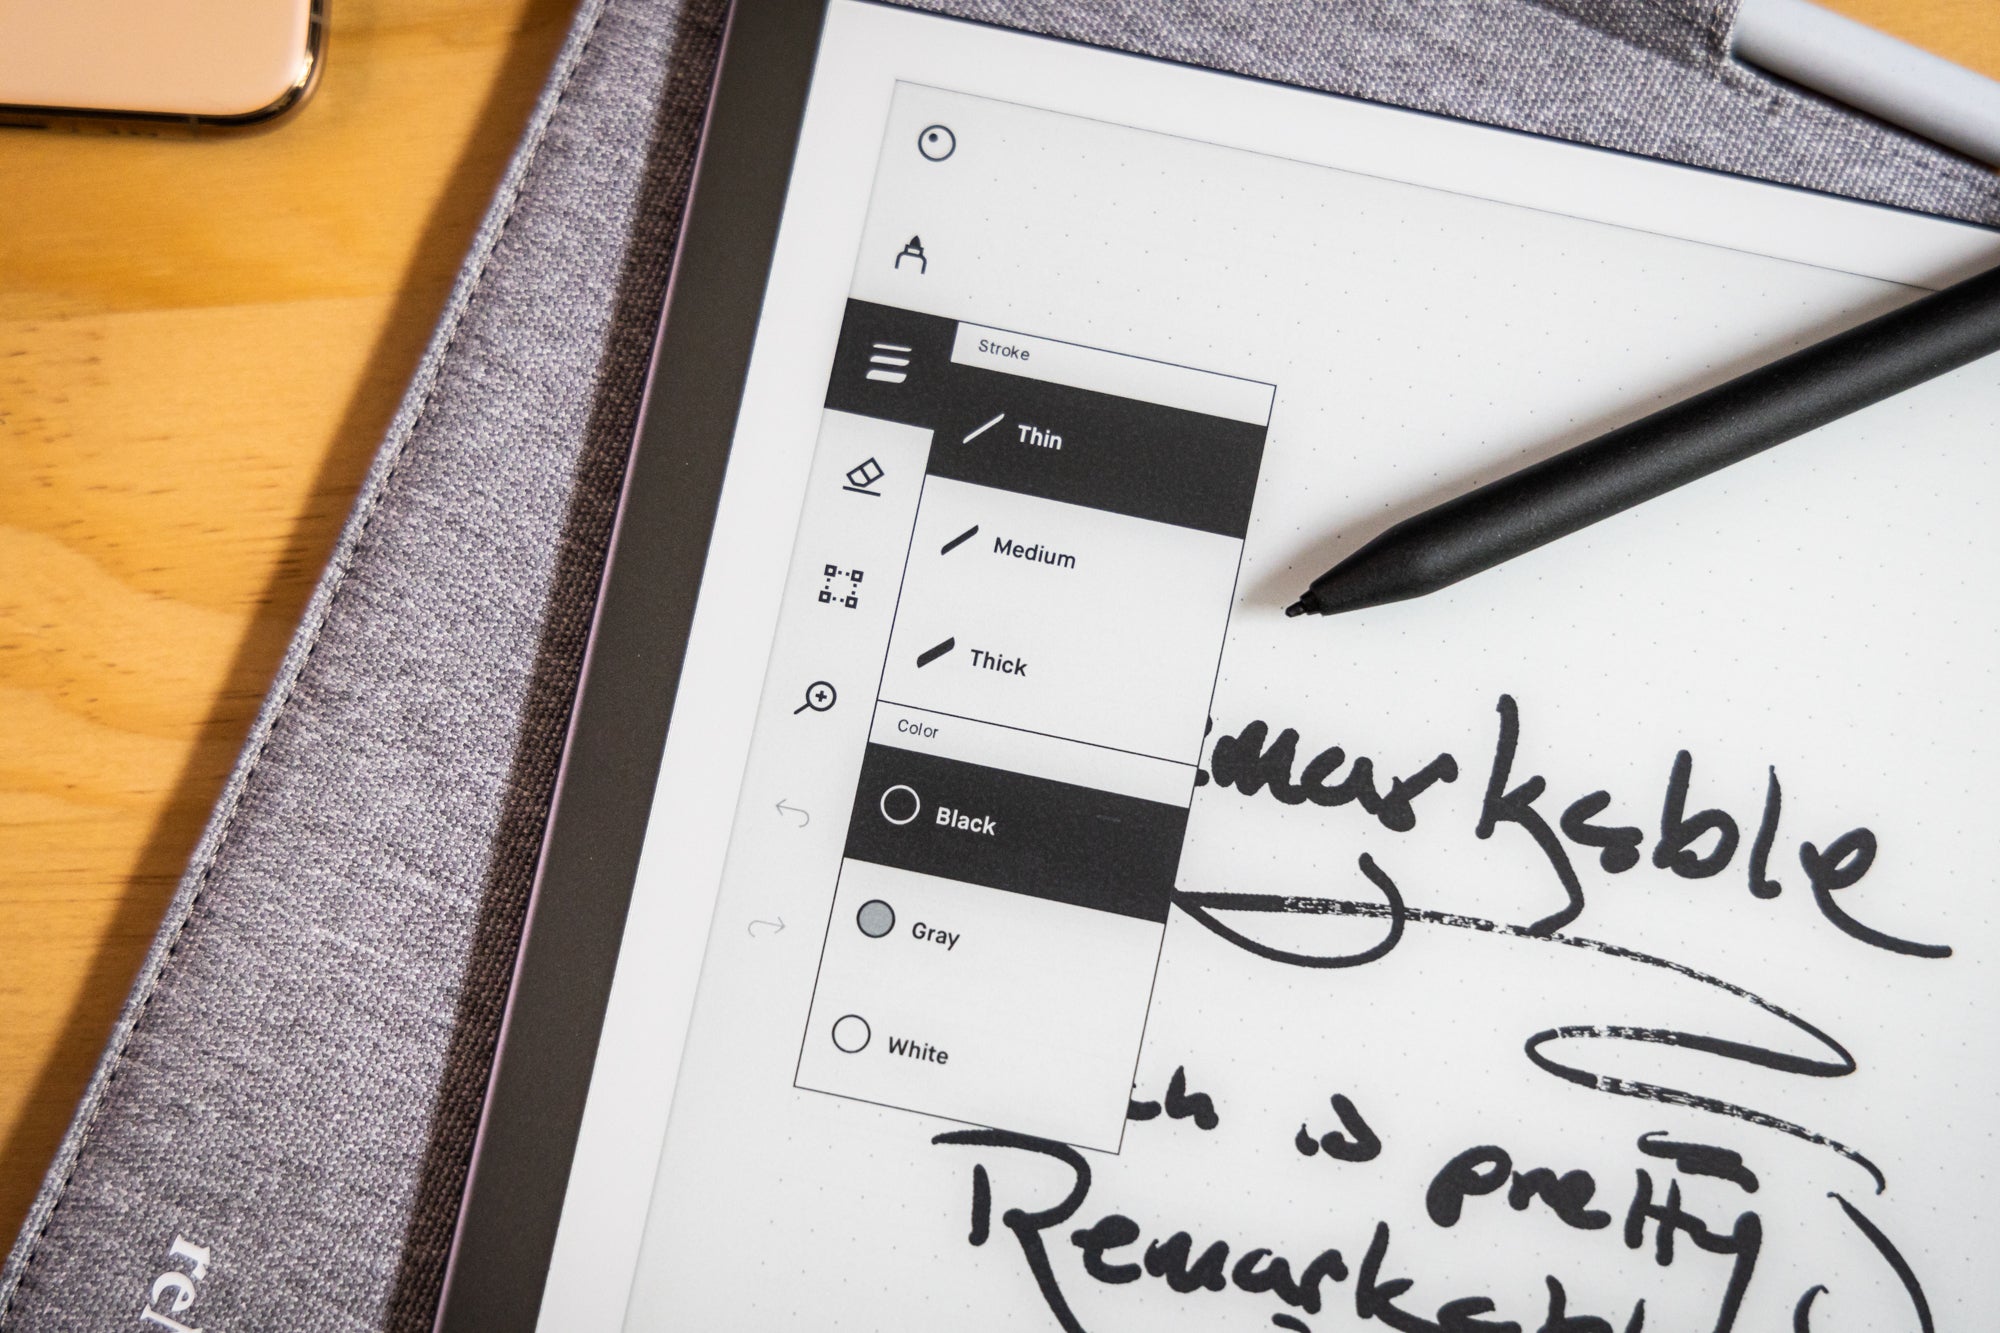 Stroke
Thin
Medium
Thick
Color
Black
Gray
White
emarkable
is pretty
Remarkabl
re